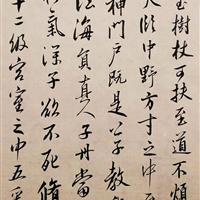 玉樹杖可扶至道不煩
天臨中野方寸之中至
神門戶既是公子教我
法海員真人子丹當
氣深子欲不死脩
十二級宮室之中五采